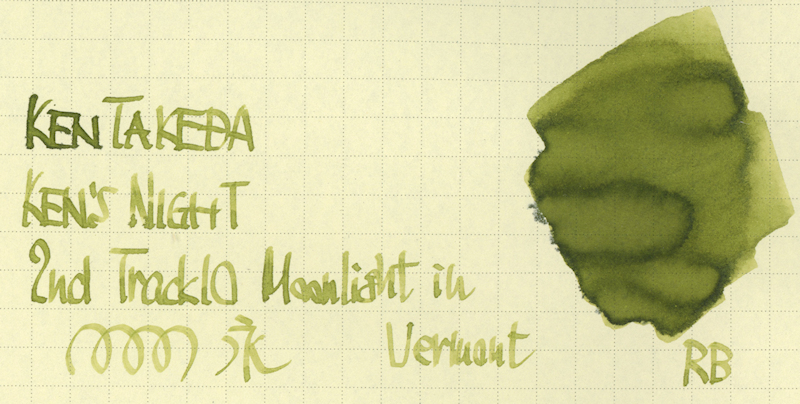 KEN TAKEDA
KEN'S NIGHT
2nd Track10 Moonlight in
永 Vermont
RB